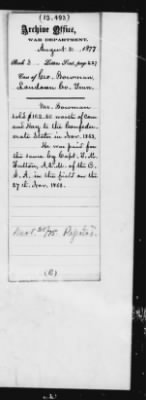 (13,493)
Archive Office,
WAR DEPARTMENT,
August 31 1877
Book 3 - Letters Sent, page 629
Case of Geo. Bowman,
Loudoun Co. Tenn.
Geo. Bowman
sold $112.50 worth of Corn
and Hay to the Confede-
rate States in Nov. 1863.
He was paid for
the same by Capt.
A.Q.M. of the C.
S. A. in the field on the
27th Nov. 1863.